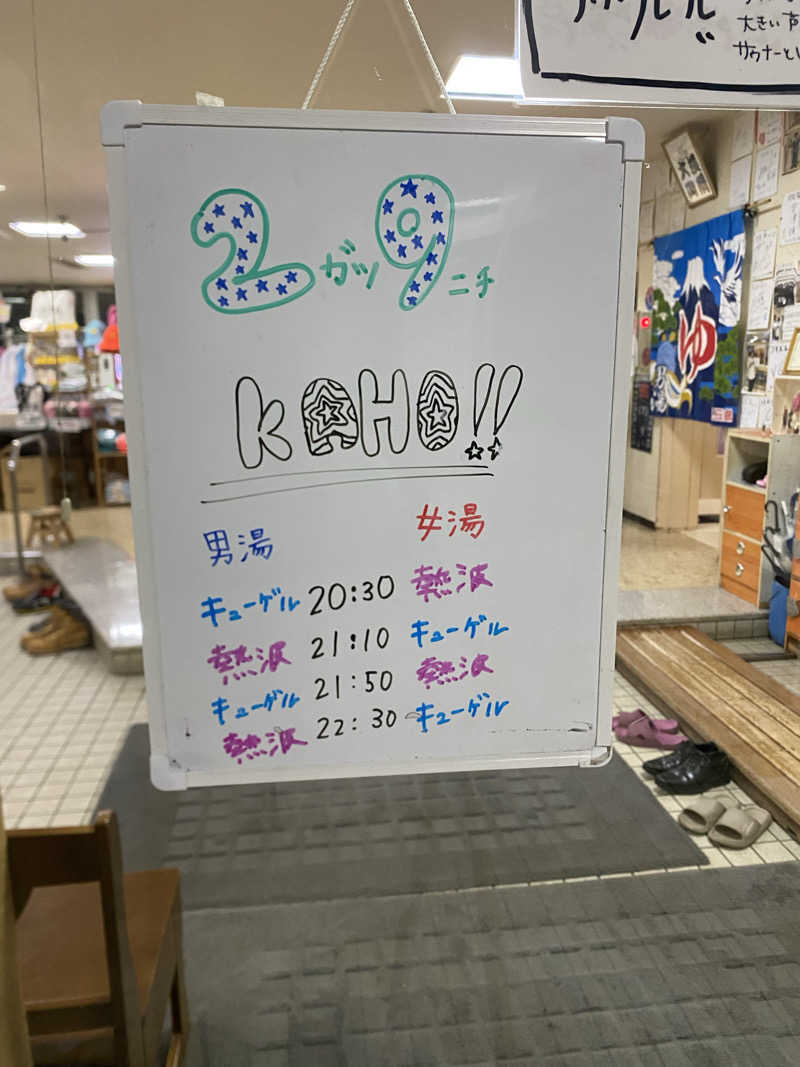 2ガツ9ニチ
KAHO!!
男湯 女湯
キューゲル 20:30 熱波
熱波 21:10 キューゲル
キューゲル 21:50 熱波
熱波 22:30 キューゲル
大きい声
サウナーとし
ゆ